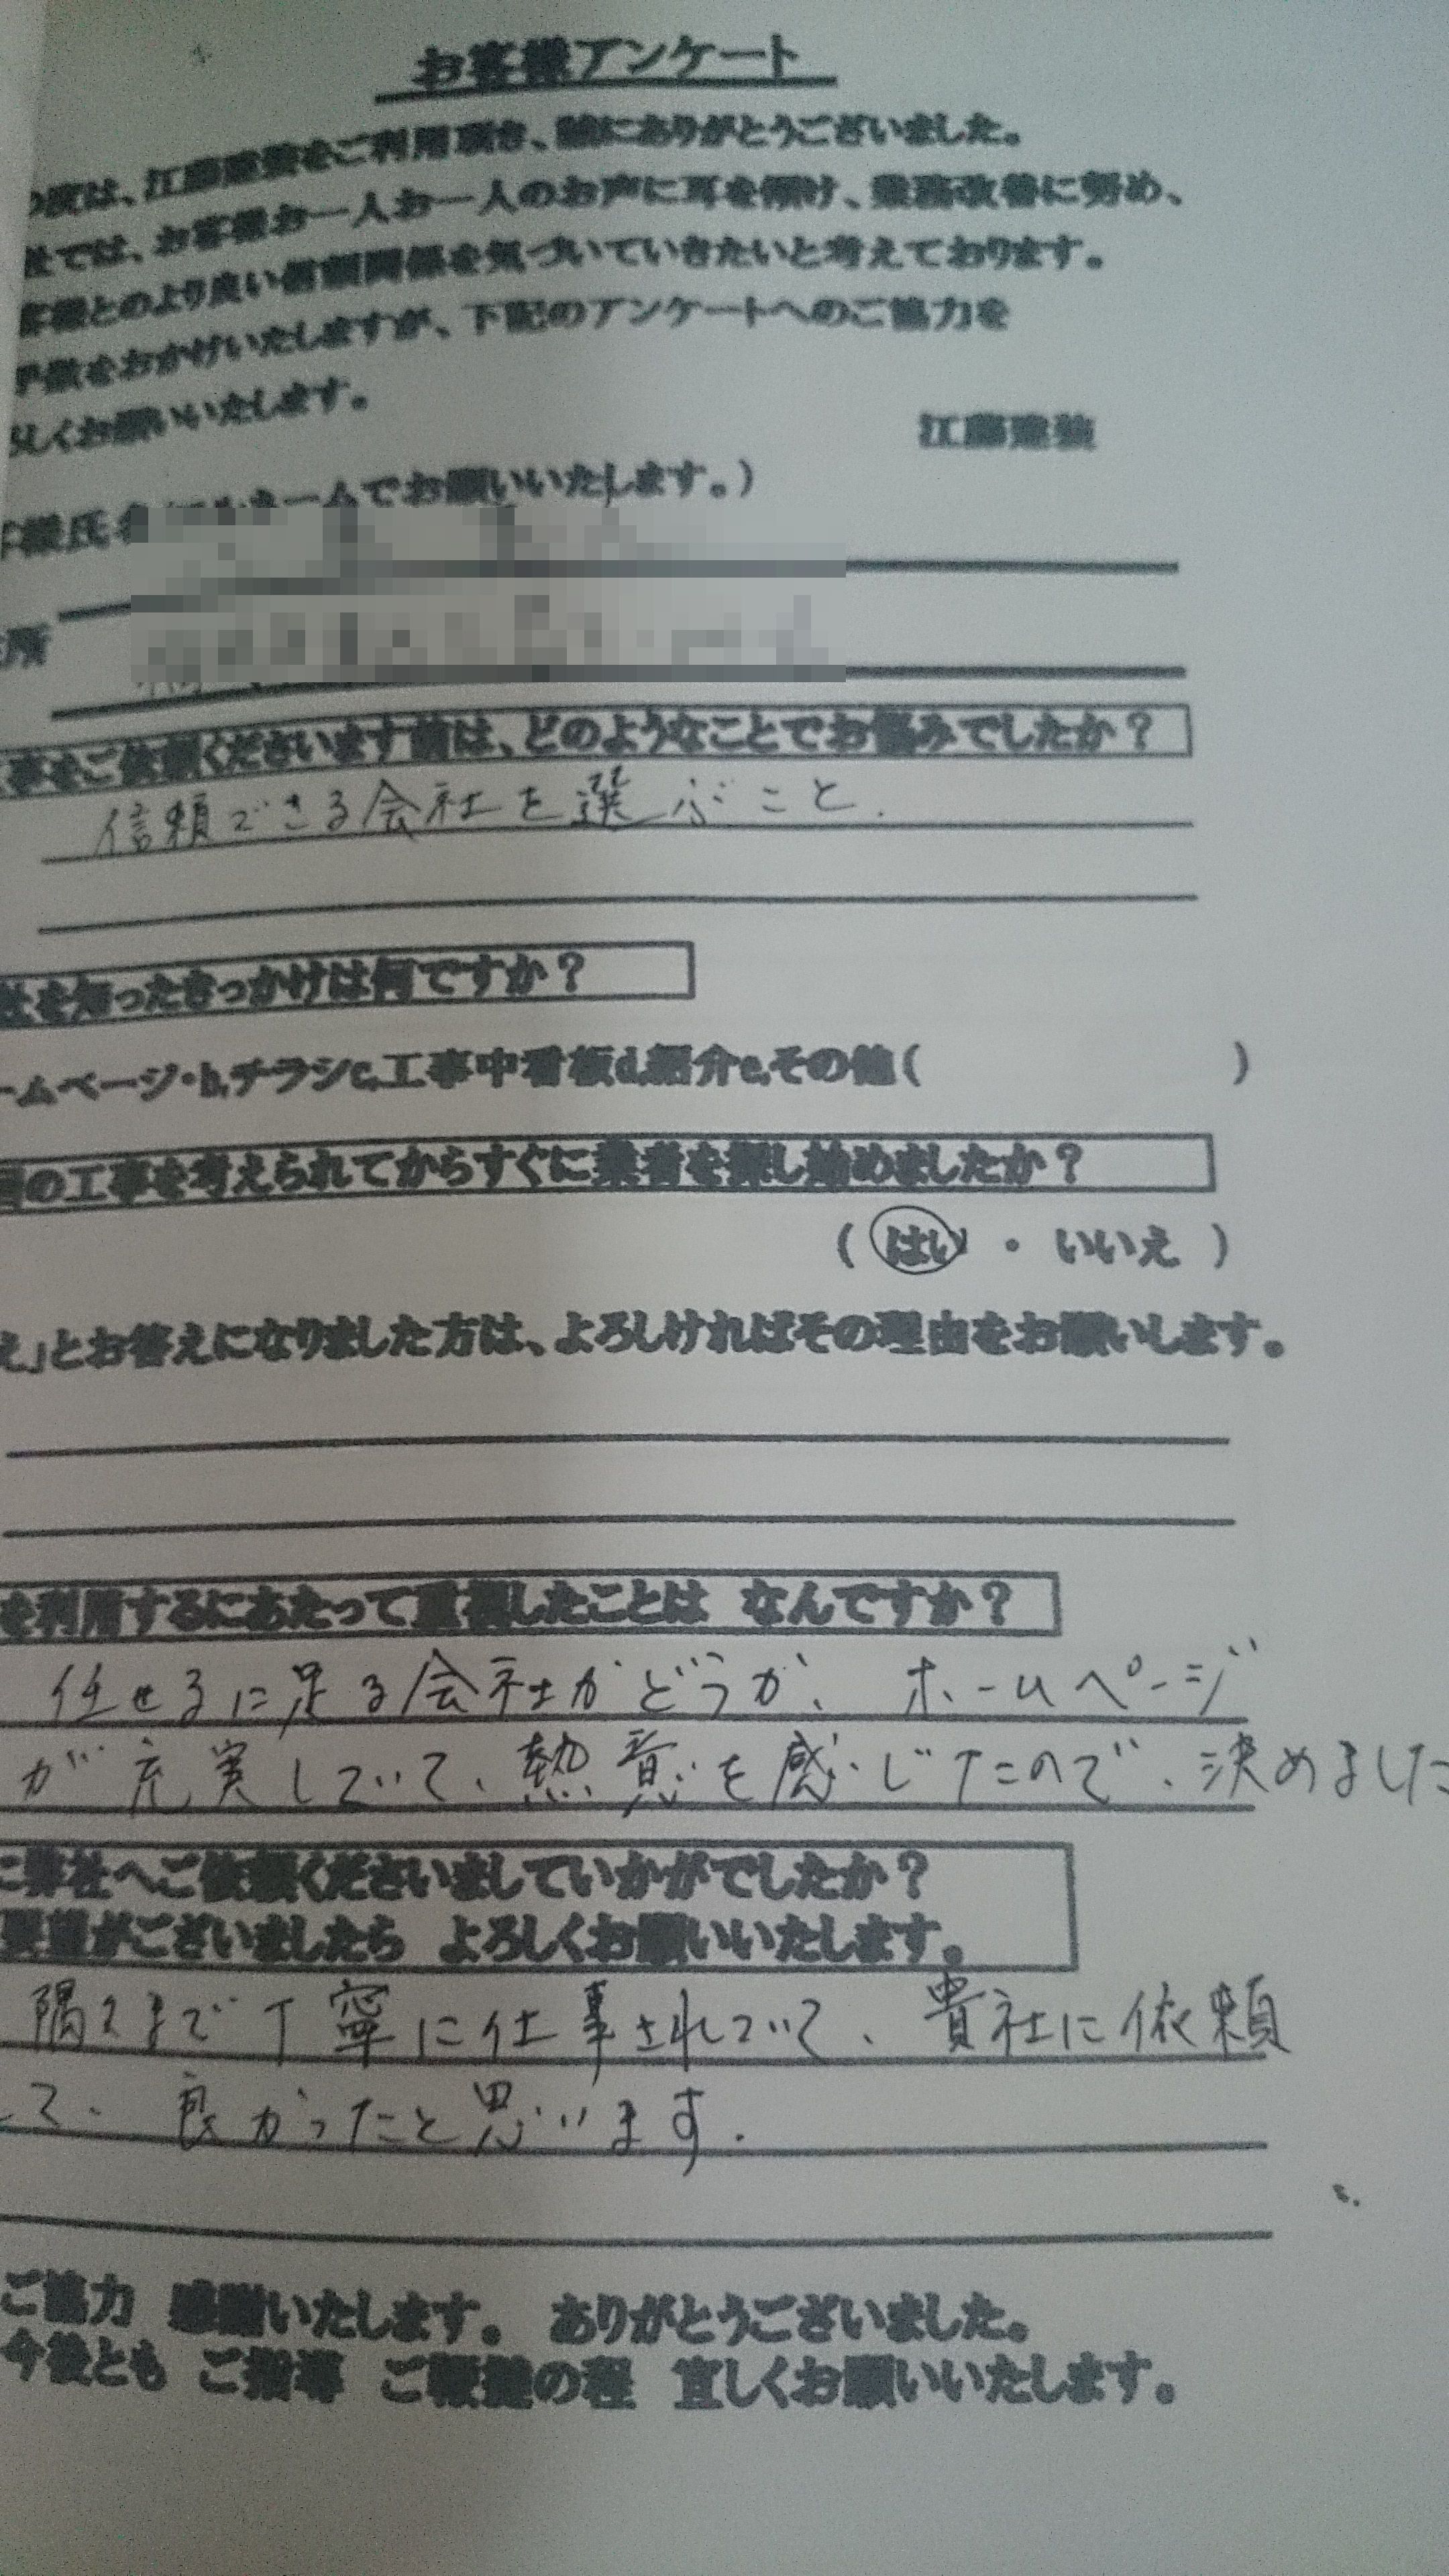 お客様アンケート
の度は、江藤建装をご利用頂き、誠にありがとうございました。
社では、お客様お一人お一人のお声に耳を傾け、業務改善に努め、
客様とのより良い信頼関係を気づいていきたいと考えております。
手数をおかけいたしますが、下記のアンケートへのご協力を
しくお願いいたします。
江藤建装
客様氏名(フルネームでお願いいたします。)
所
事をご依頼くださいます前は、どのようなことでお悩みでしたか？
信頼できる会社を選ぶこと.
社を知ったきっかけは何ですか？
ームページ・b,チラシc,工事中看板d,紹介e,その他( )
回の工事を考えられてからすぐに業者を探し始めましたか？
( はい ・ いいえ )
え」とお答えになりました方は、よろしければその理由をお願いします。
を利用するにあたって重視したことは なんですか？
任せるに足る会社かどうか、ホームページ
が充実していて、熱意を感じたので、決めました
に弊社へご依頼くださいましていかがでしたか？
要望がございましたら よろしくお願いいたします。
隅々まで丁寧に仕事されていて、貴社に依頼
して、良かったと思います.
ご協力 感謝いたします。 ありがとうございました。
今後とも ご指導 ご鞭撻の程 宜しくお願いいたします。